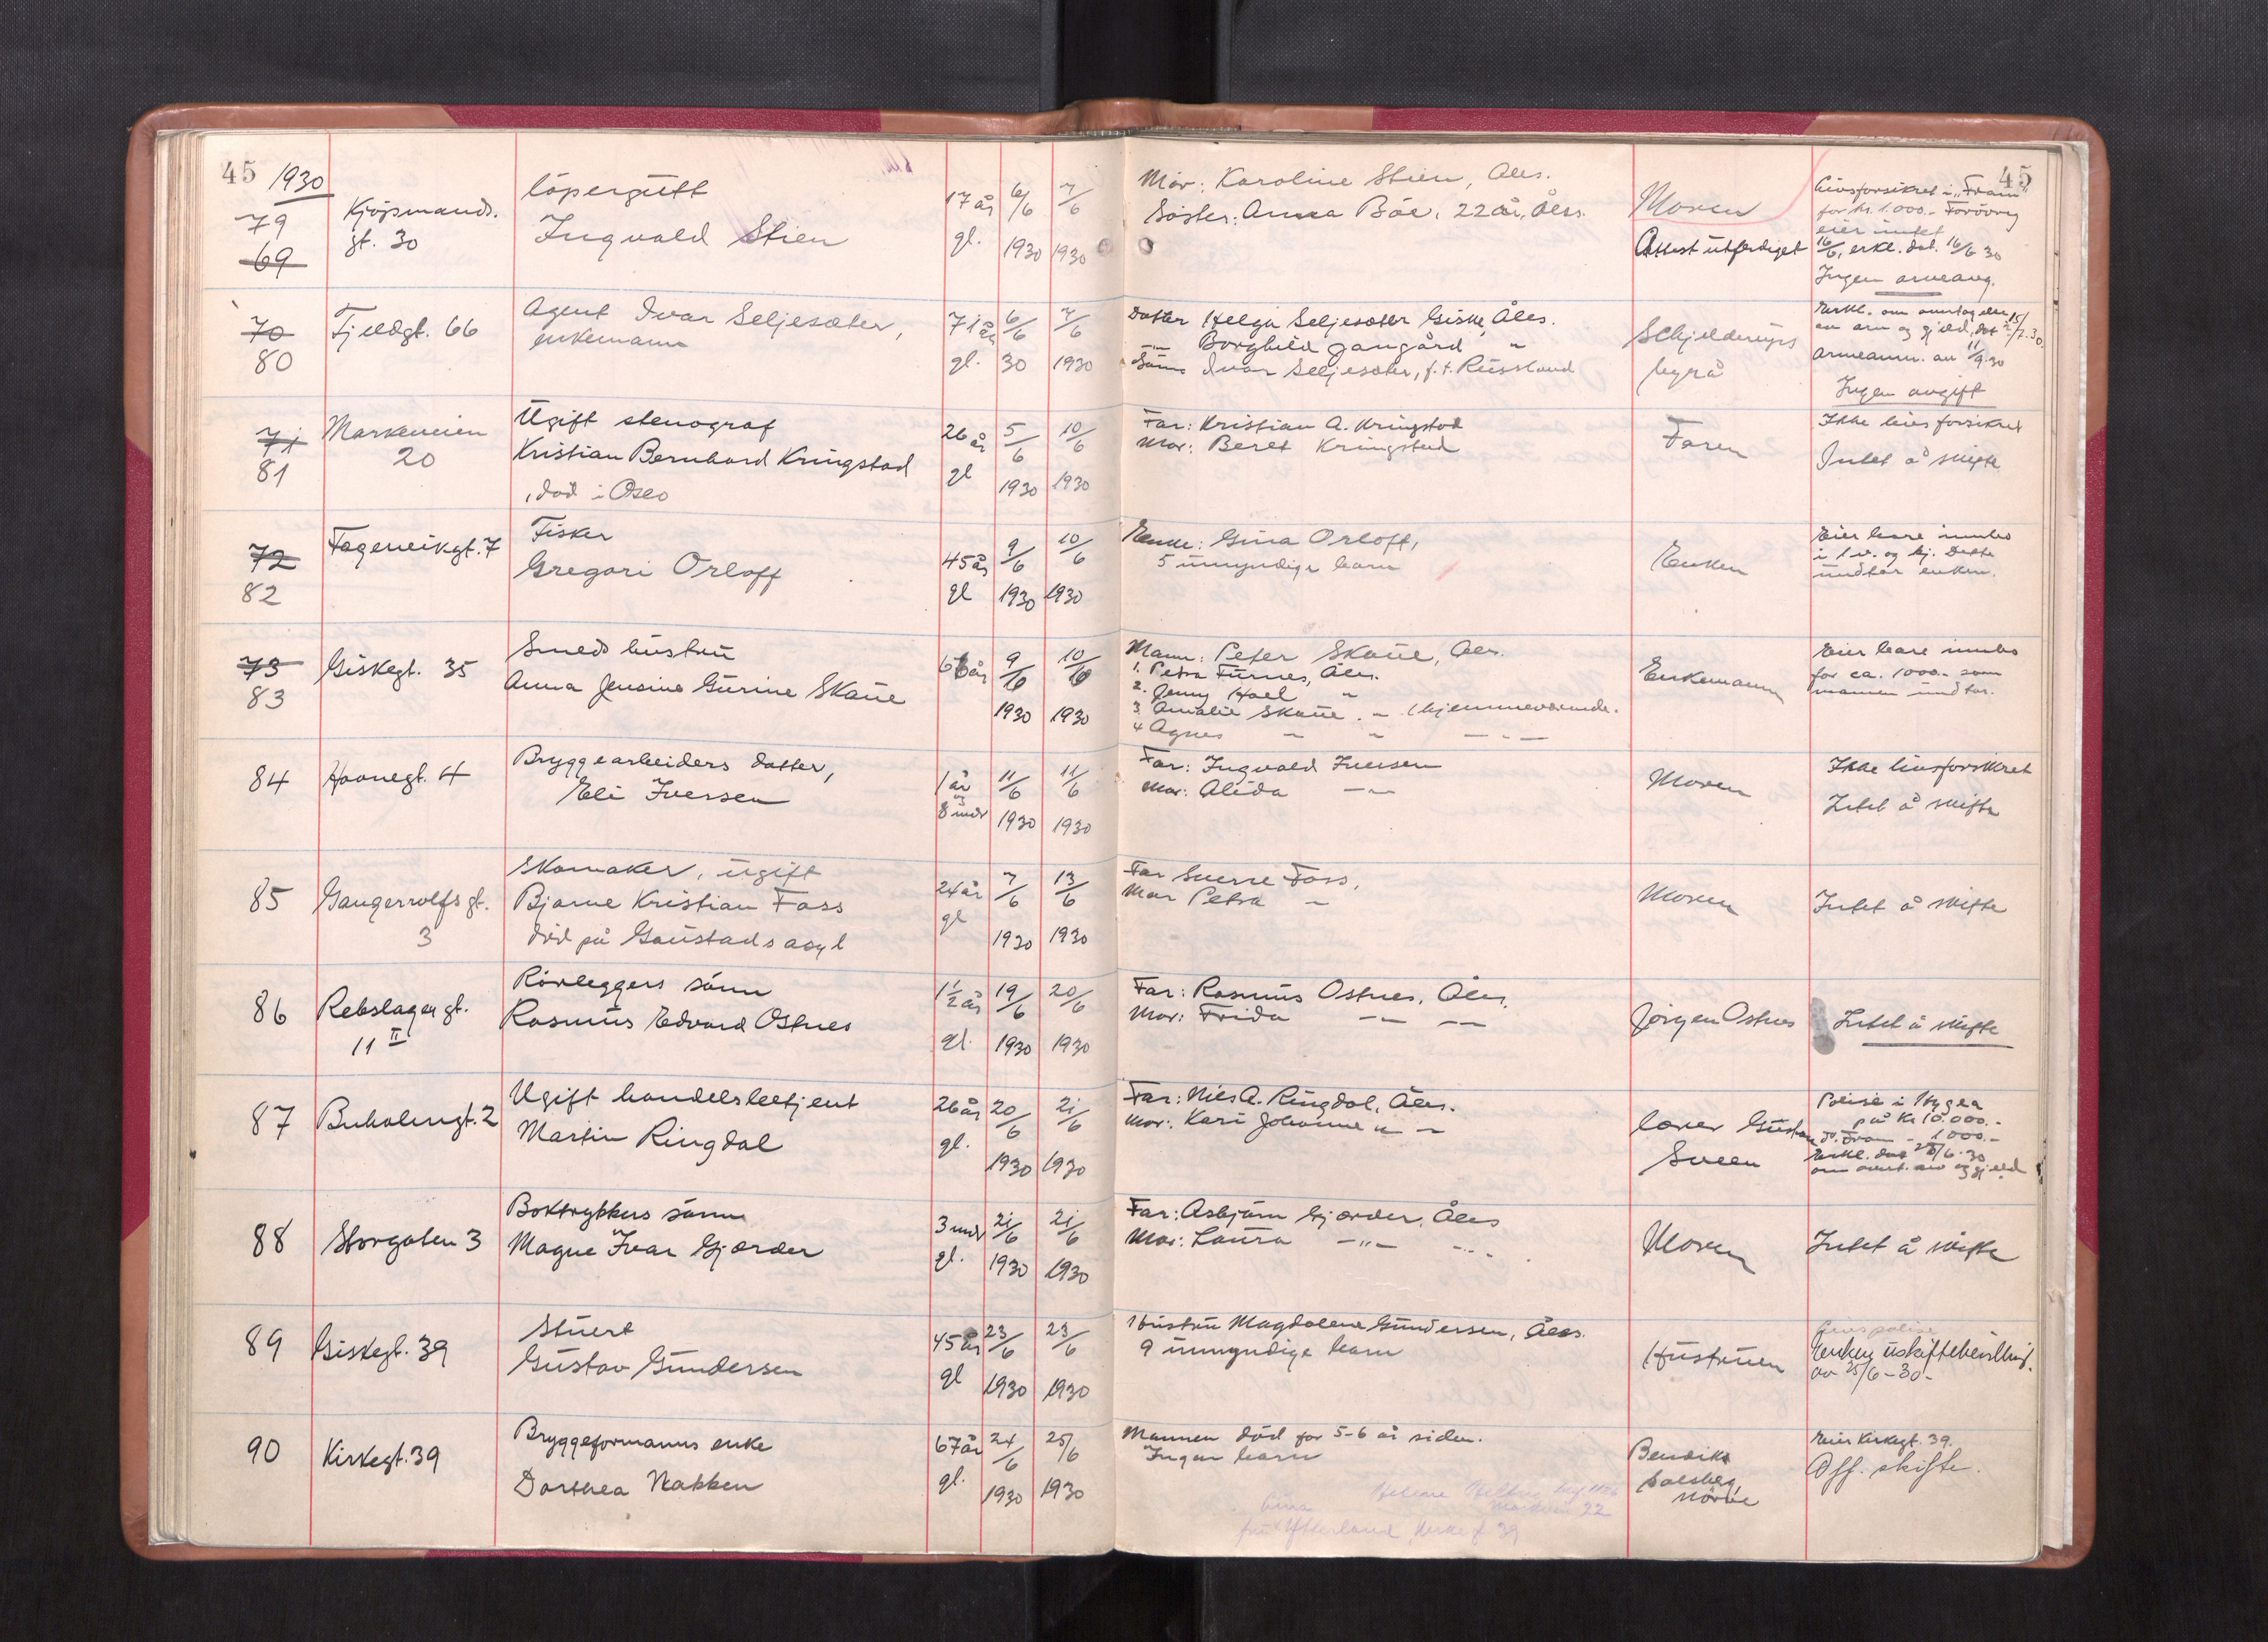 45 1930
45
79
69
Kjøpmands.
gt. 30
löpergutt
Ingvald Stien
17 år
gl.
6/6
1930
7/6
1930
Mor: Karoline Stien, Åles.
Søster: Anna Böe, 22 år, Åles.
Moren
Attest utferdiget
Livsforsikret i "Fram"
for kr. 1.000.- Forövrig
eier intet
16/6, erkl. dat. 16/6 30
Ingen arveavg.
70
80
Fjeldgt. 66
Agent Ivar Seljesæter,
enkemann
71 år
gl.
6/6
30
7/6
1930
Datter Helga Seljesæter Giske, Åles.
-"- Borghild Gangård "
Sönn Ivar Seljesæter, f.t. Russland
Schjelderups
byrå
Erkl. om overtagelse
av arv og gjeld, dat 15/7.30.
Arveanm. av 11/9.30
Ingen avgift
71
81
Markeveien
20
Ugift stenograf
Kristian Bernhard Kringstad
, död i Oslo
26 år
gl
5/6
1930
10/6
1930
Far: Kristian A. Kringstad
Mor: Beret Kringstad
Faren
Ikke livsforsikret
Intet å skifte
72
82
Fagerveikgt. 7
Fisker
Gregori Orloff
45 år
gl
9/6
1930
10/6
1930
Enke: Gina Orloff,
5 umyndige barn
Enken
Eier bare innbo
i 1 v. og kj. Dette
undtar enken.
73
83
Giskegt. 35
Smeds hustru
Anna Jensine Gurine Skaue
66 år
9/6
1930
10/6
1930
Mann: Peter Skaue, Åles.
1. Petra Furnes, Åles.
2. Jenny Hoel "
3 Amalie Skaue. - (hjemmeværende.
4 Agnes - - - - -
Enkemann
Eier bare innbo
for ca. 1000.- som
mannen undtar.
84
Havnegt. 4
Bryggearbeiders datter,
Eli Iversen
1 år
og
8 mdr
11/6
1930
11/6
1930
Far: Ingvald Iversen
Mor: Alida -"-
Moren
Ikke livsforsikret
Intet å skifte
85
Gangerrolfs gt.
3
Skomaker, ugift
Bjarne Kristian Foss
död på Gaustads asyl
24 år
gl
7/6
1930
13/6
1930
Far Sverre Foss,
Mor Petra -
Moren
Intet å skifte
86
Rebslager gt.
11 II
Rörleggers sönn
Rasmus Edvard Ostnes
1 1/2 år
gl.
19/6
1930
20/6
1930
Far: Rasmus Ostnes, Åles.
Mor: Frida -"- -"-
Jörgen Ostnes
Intet å skifte
87
Buholmgt. 2
Ugift handelsbetjent
Martin Ringdal
26 år
gl.
20/6
1930
21/6
1930
Far: Nils A. Ringdal, Åles.
Mor: Kari Johanne " -
lærer Gustav
Sveen
Polise i Hygea
på kr 10.000.-
do. Fram - 1000.-
Erkl. dat 28/6.30
om overt. arv og gjeld.
88
Storgaten 3
Boktrykkers sönn
Magne Ivar Gjærder
3 mdr
gl.
21/6
1930
21/6
1930
Far: Asbjörn Gjærder, Åles
Mor: Laura -"- -"-
Moren
Intet å skifte
89
Giskegt. 39
Stuert
Gustav Gundersen
45 år
gl
23/6
1930
23/6
1930
Hustru Magdalene Gundersen, Åles.
9 umyndige barn
Hustruen
Livspolise
Enken uskiftebevilling.
av 25/6 - 30 -
90
Kirkegt. 39
Bryggeformanns enke
Dorthea Nakken
67 år
gl.
24/6
1930
25/6
1930
Mannen död for 5-6 år siden.
Ingen barn
Bendiks
Solsberg,
Nörve
Eier Kirkegt. 39.
Off. skifte.